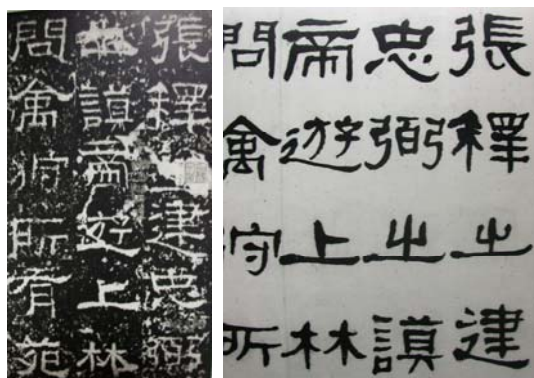 張釋之建忠弼
之謨帝遊上林
問禽狩所有苑
張釋之建
忠弼之謨
帝遊上林
問禽狩所